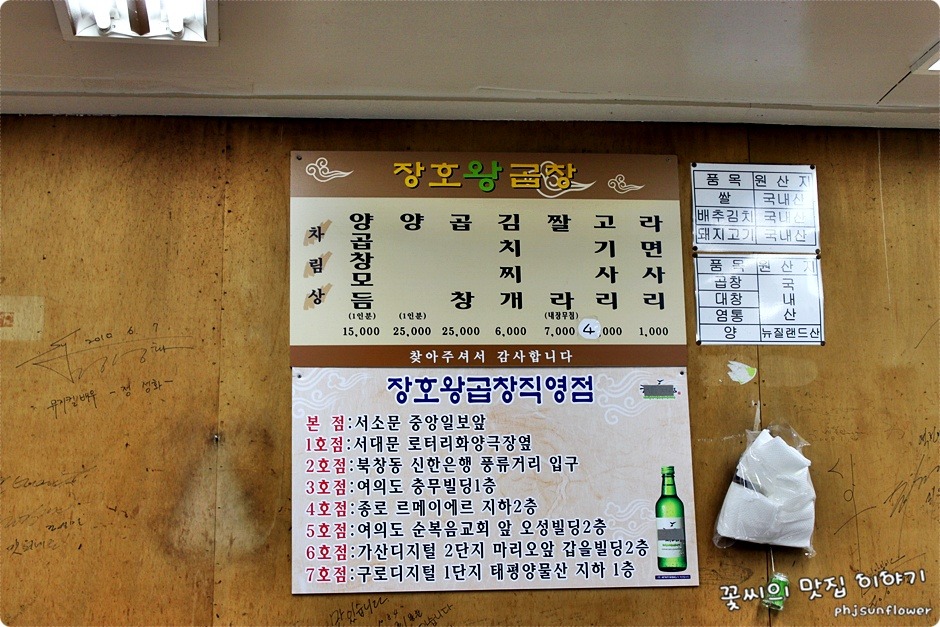 장호왕곱창
차림상
양곱창모듬 (1인분) 15,000
양 (1인분) 25,000
곱창 25,000
김치찌개 6,000
짤라 (내장무침) 7,000
고기사리 4,000
라면사리 1,000
찾아주셔서 감사합니다
장호왕곱창직영점
본 점:서소문 중앙일보앞
1호점:서대문 로터리화양극장옆
2호점:북창동 신한은행 풍류거리 입구
3호점:여의도 충무빌딩1층
4호점:종로 르메이에르 지하2층
5호점:여의도 순복음교회 앞 오성빌딩2층
6호점:가산디지털 2단지 마리오앞 갑을빌딩2층
7호점:구로디지털 1단지 태평양물산 지하 1층
품 목 원 산 지
쌀 국내산
배추김치 국내산
돼지고기 국내산
품 목 원 산 지
곱창 국
대창 내
염통 산
양 뉴질랜드산
2010 6. 7
뮤지컬배우 - 정 성화 -
맛있습니다
꽃씨의 맛집 이야기
phjsunflower